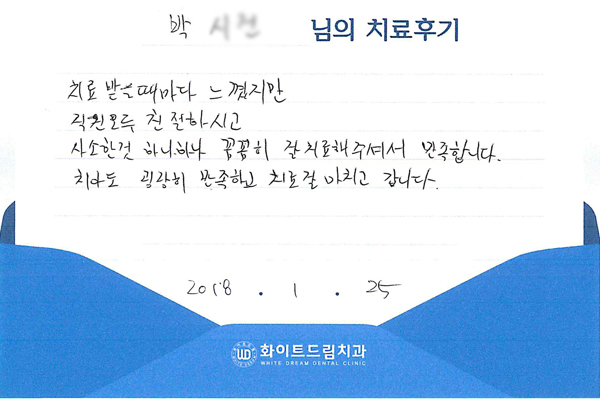 박 님의 치료후기
치료 받을때마다 느꼈지만
직원모두 친절하시고
사소한것 하나하나 꼼꼼히 잘 치료해주셔서 만족합니다.
치아도 굉장히 만족하고 치료잘 마치고 갑니다.
2018 . 1 . 25
화이트드림치과
WHITE DREAM DENTAL CLINIC